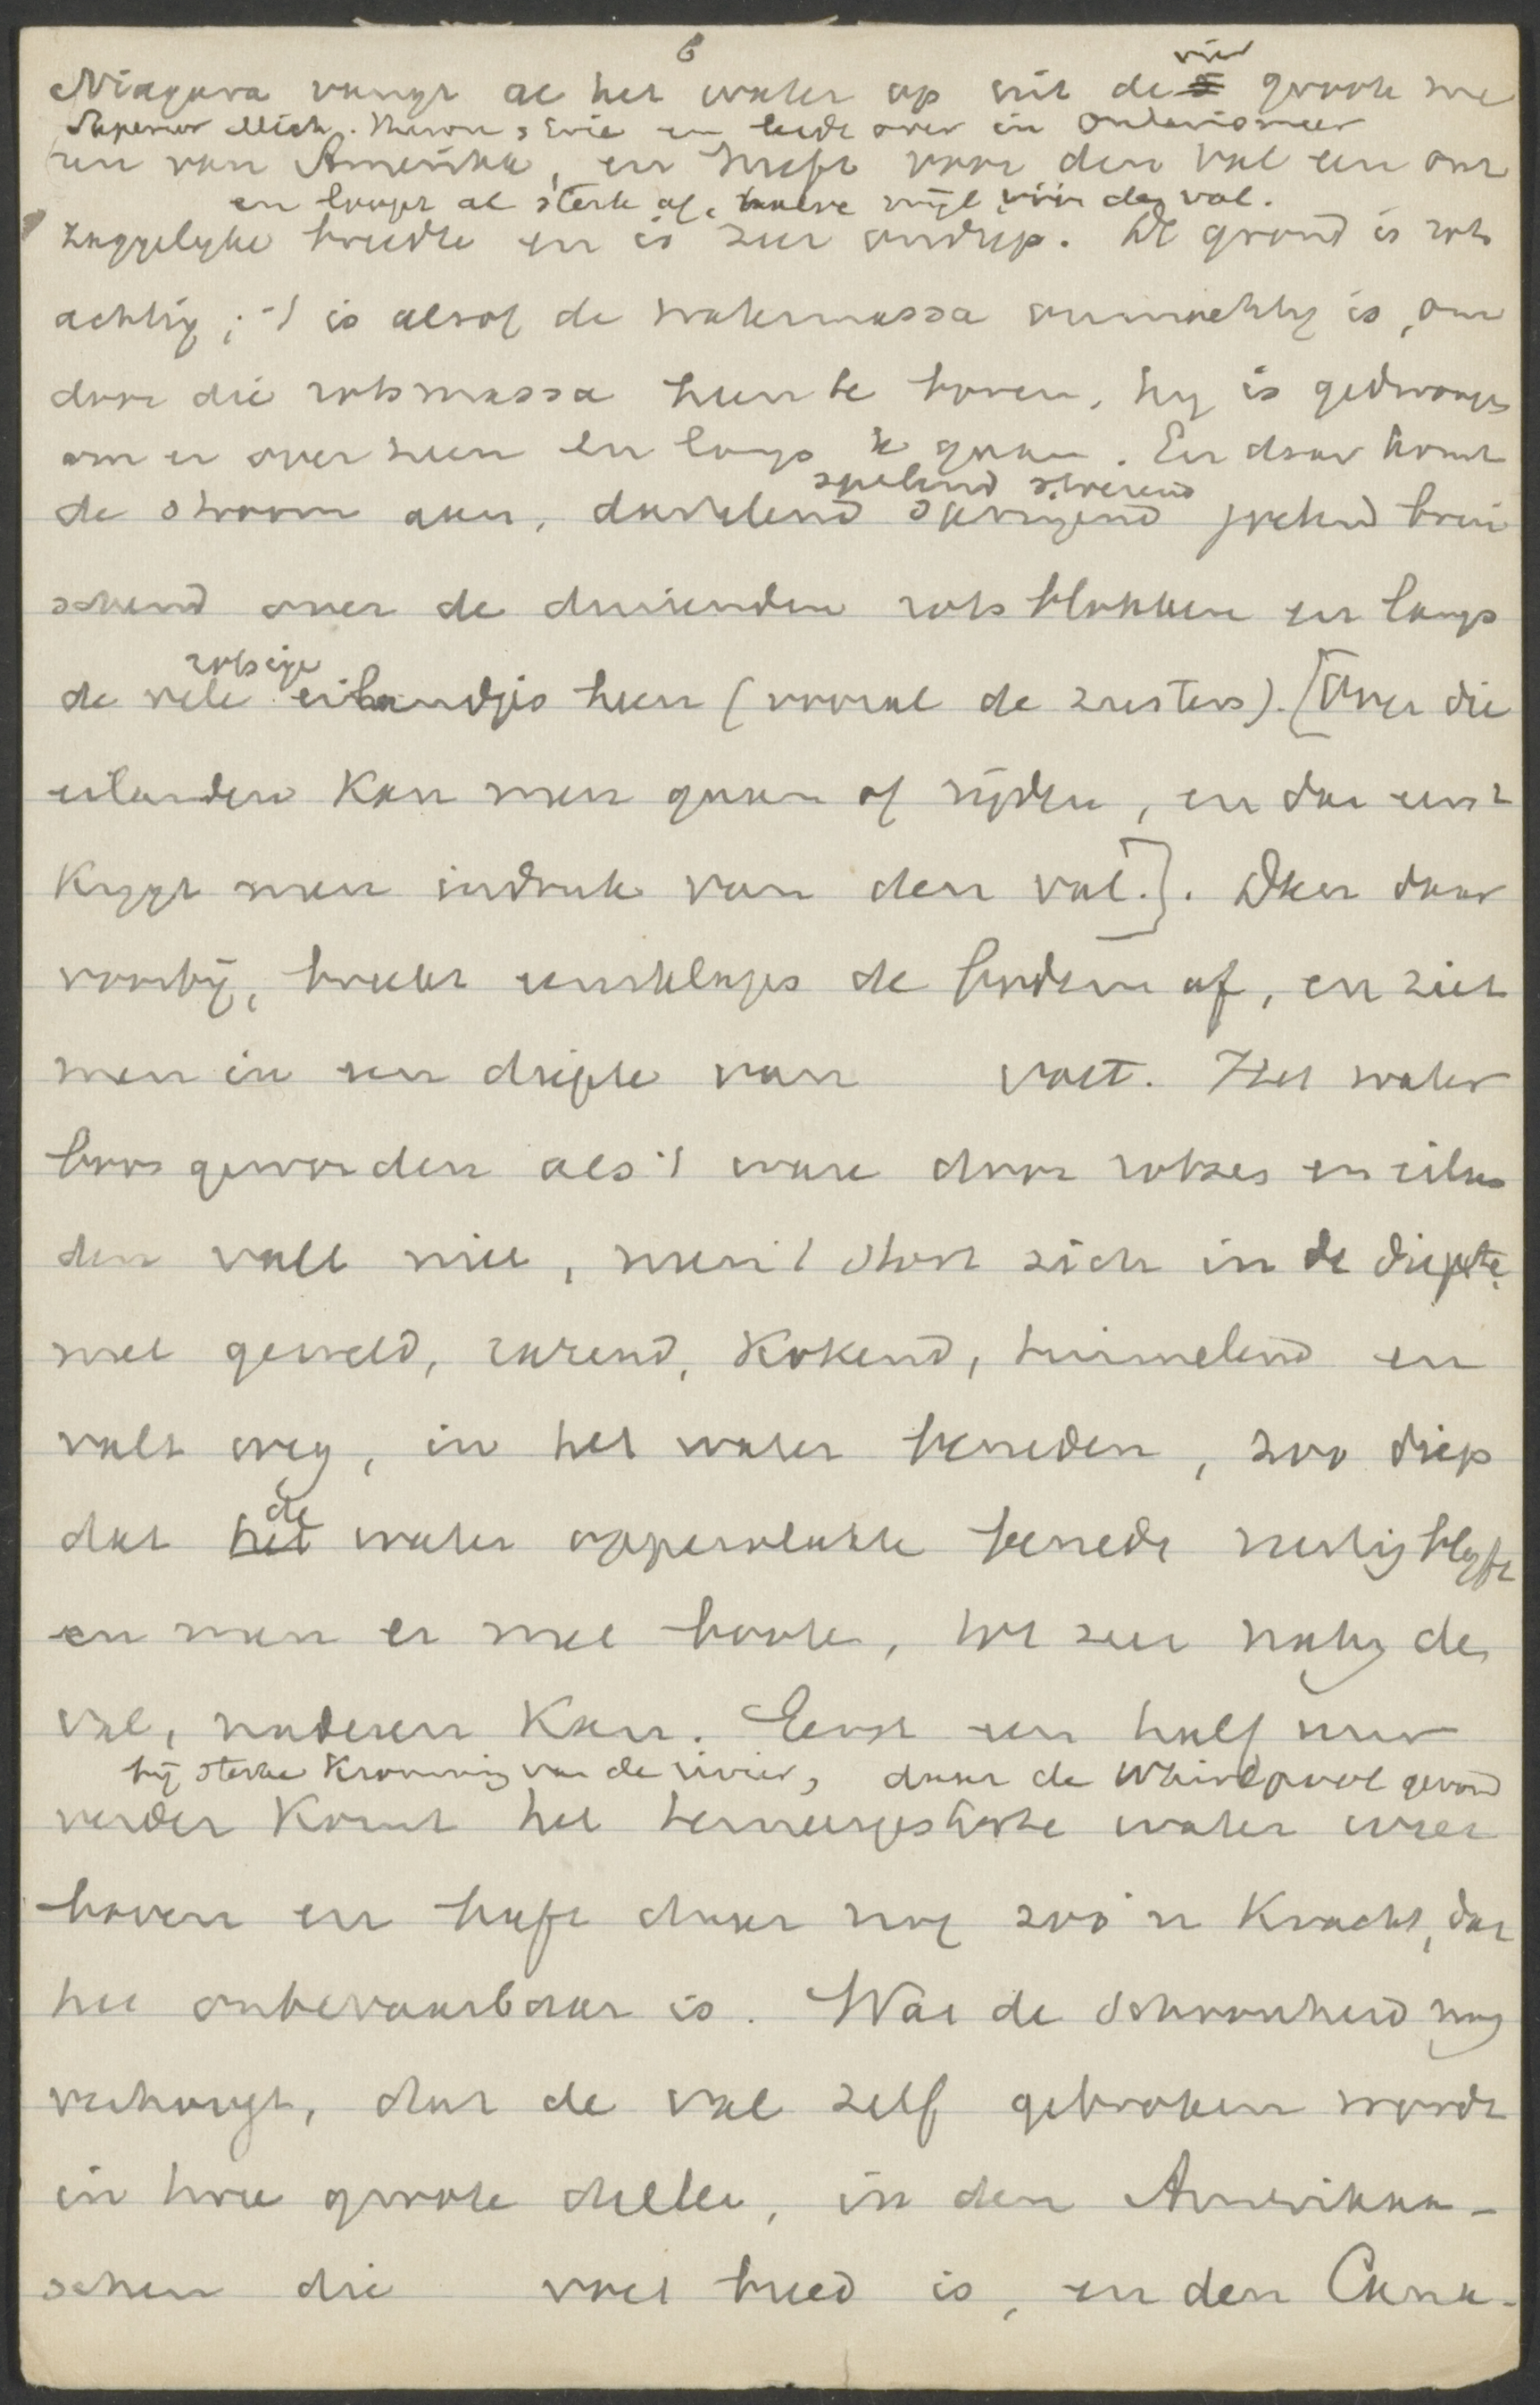 6
vier
Niagara vangt al het water op uit de 5 groote me
Superior Mich. Huron, Erie en leidt over in Ontariomeer
ren van Amerika, en heeft voor den val een ont
en loopt al sterk af, halve mijl vóór den val.
zaggelyke breedte en is zeer ondiep. De grond is rots
achtig; 't is alsof de watermassa onmachtig is, om
door die rotsmassa heen te boren, hy is gedwongen
om er over heen en langs te gaan. En daar komt
spelend stoeiend
de stroom aan, dartelend springend joelend brui
schend over de duizenden rotsblokken en langs
rotsige
de vele eilandjes heen (vooral de zusters). [Over die
eilanden kan men gaan of rijden, en dan eerst
krygt men indruk van den val.]. Dan daar
voorbij, breekt eensklaps de bodem af, en ziet
men in een diepte van voet. Het water
boos geworden als 't ware door rotsen en eilan
den valt niet, neen 't stort zich in de diepte,
met geweld, razend, kokend, tuimelend en
valt weg, in het water beneden, zoo diep
de
dat het water oppervlakte beneden rustig blyft
en men er met booten, tot zeer naby de
val, naderen kan. Eerst een half uur
bij sterke kromming van de rivier, daar de Whirlpool gevormd
verder komt het terneergestorte water weer
boven en heeft daar nog zoo'n kracht, dat
het onbevaarbaar is. Wat de schoonheid nog
verhoogt, dat de val zelf gebroken wordt
in twee groote deelen, in den Amerikaan-
schen die voet breed is, en den Cana-